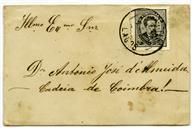 Illmo Exmo Snr
Dr Antonio José d'Almeida
Cadeia de Coimbra